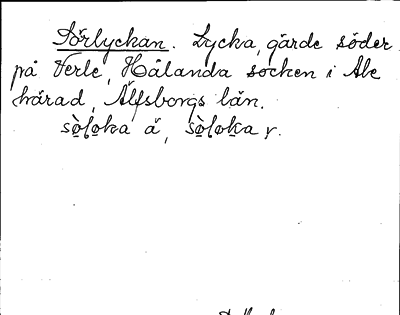 Sörlyckan. Lycka, gärde söder
på Verle, Hålanda socken i Ale
härad, Älfsborgs län.